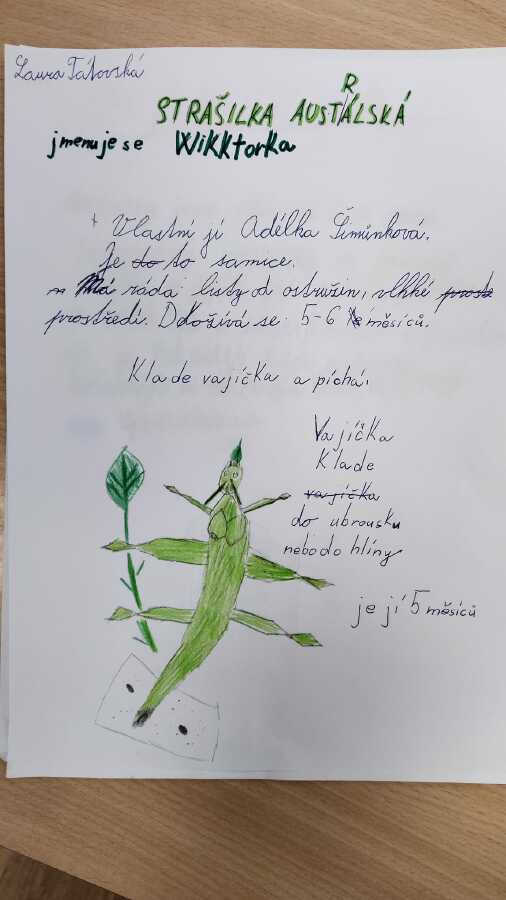 Laura Tátovská
STRAŠILKA AUSTRÁLSKÁ
jmenuje se Wikktorka
Vlastní jí Adélka Šimůnková.
Je do to samice.
Má ráda listy od ostružin, vlhké prostě
prostředí. Dožívá se 5-6 měsíců.
Klade vajíčka a píchá.
Vajíčka
Klade
vajíčka
do ubrousku
nebo do hlíny
je jí 5 měsíců